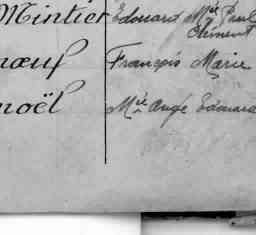 Mintier Edouard Mie Paul
Clément
nœuf François Marie
noël Mie Ange Edouard